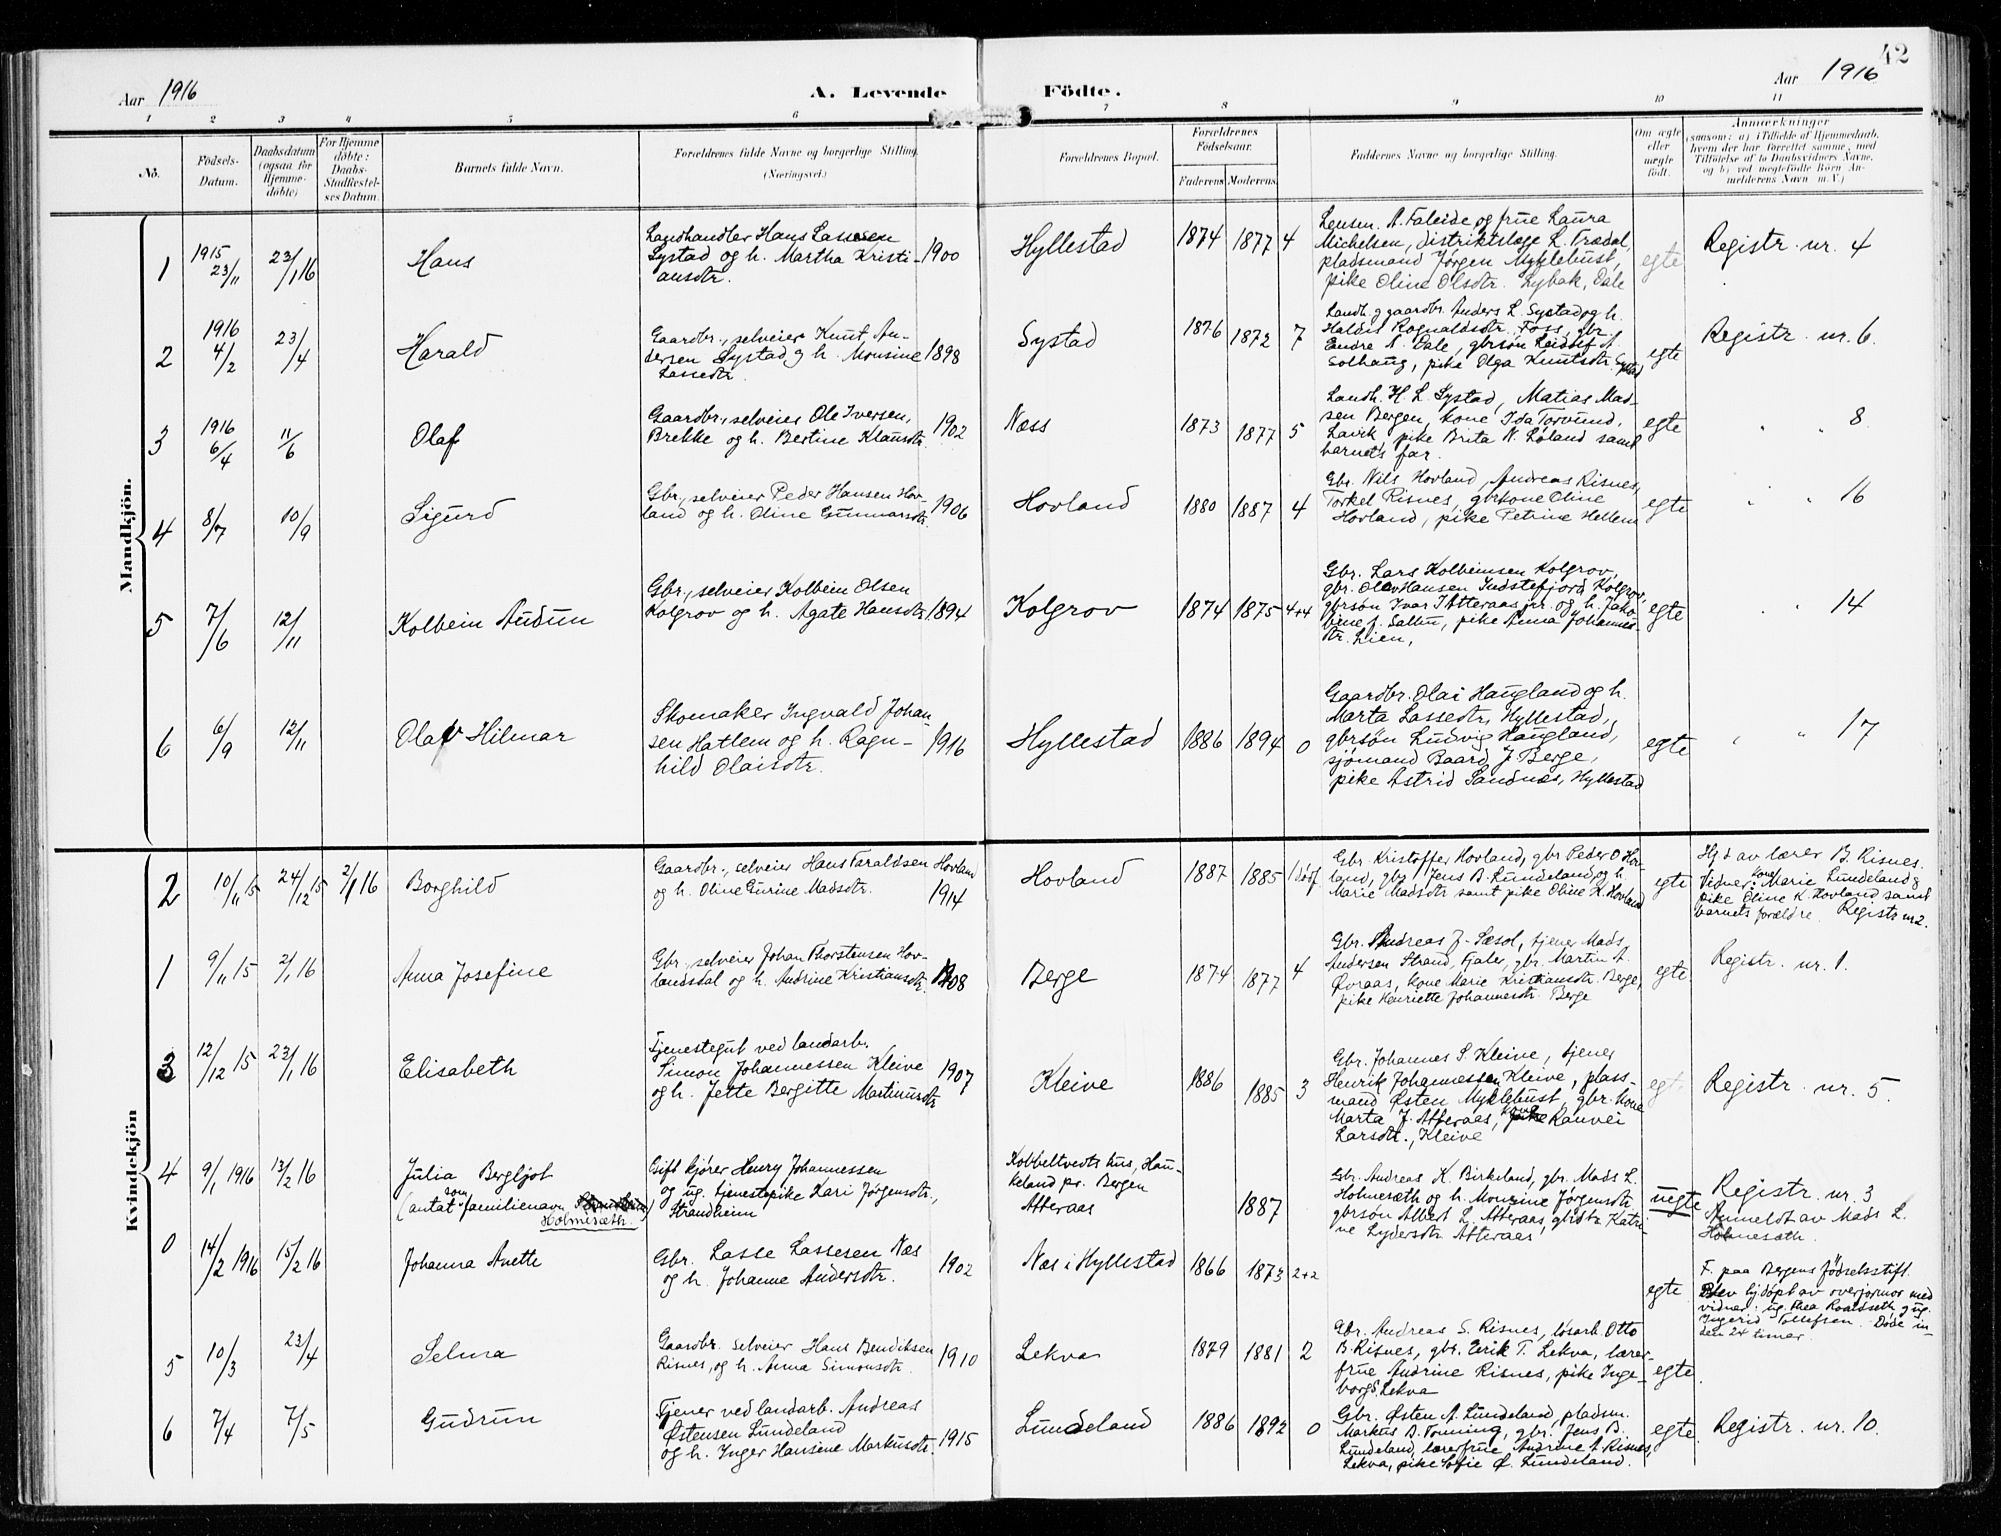 42
Aar 1916
A. Levende
Födte.
Aar 1916
1 2 3 4 5 6 7 8 9 10 11
No.
Födsels-
Datum.
Daabsdatum
(ogsaa for
Hjemme-
döbte)
For Hjemme
döbte:
Daabs-
Stadfæstel-
ses Datum.
Barnets fulde Navn.
Forældrenes fulde Navne og borgerlige Stilling.
(Næringsvei.)
Forældrenes Bopæl.
Forældrenes
Födselsaar.
Faderens
Moderens
Faddernes Navne og borgerlige Stilling.
Om ægte
eller
uægte
födt.
Anmærkninger
(saasom: a) i Tilfælde af Hjemmedaab,
hvem der har forrettet samme, med
Tilföielse af to Daabsvidners Navne,
og b) ved uægtefödte Börn An-
melderens Navn m. V.)
Mandkjön.
1
1915
23/11
23/1 16
Hans
Landhandler Hans Lassesen
Systad og h. Martha Kristi-
ansdtr.
1900
Hyllestad
1874 1877 4
Lensm. A. Faleide og frue Laura
Michelsen, distriktslæge L. Trædal,
pladsmand Jørgen Myklebust,
pike Oline Olsdtr. Lybak, Dale
egte
Registr. nr. 4
2
1916
4/2
23/4
Harald
Gaardbr., selveier Knut An-
dersen Systad og h. Monsine
Lassedtr.
1898
Systad
1876 1872 7
Landh. g gaardbr. Anders L. Systad og h.
Haldis Rognaldsdtr. Foss, gbr.
Endre A. Dale, gbrsøn Leidulf A.
Solhaug, pike Olga Knutsdtr. Systad
egte
Registr. nr. 6.
3
1916
6/4
11/6
Olaf
Gaardbr., selveier Ole Iversen,
Brekke og h. Bertine Klausdtr.
1902
Næss
1873 1877 5
Landh. H. L. Systad, Matias Mad-
sen Bergen, kone Ida Torvund,
Lavik, pike Brita N. Løland samt
barnets far.
egte
" " 8
4
8/7
10/9
Sigurd
Gbr., selveier Peder Hansen Hov-
land og h. Oline Gunnarsdtr.
1906
Hovland
1880 1887 4
Gbr. Nils Hovland, Andreas Risnes,
Torkel Risnes, gbrkone Oline
Hovland, pike Petrine Hellem
egte
" " 16
5
7/6
12/11
Kolbein Audun
Gbr., selveier Kolbein Olsen
Kolgrov og h. Agate Hansdtr.
1894
Kolgrov
1874 1875 4+4
Gbr. Lars Kolbeinsen Kolgrov,
gbr. Olav Hansen Indstefjord, Kolgrov,
gbrsøn Ivar I Atteraas jr. og h. Jako-
bine f. Sallin, pike Anna Johannes-
dtr. Lien,
egte
" " 14
6
6/9
12/11
Olav Hilmar
Skomaker Ingvald Johan-
sen Hatlem og h. Ragn-
hild Olaisdtr.
1916
Hyllestad
1886 1894 0
Gaardbr. Olai Haugland og h.
Marta Lassedtr, Hyllestad,
gbrsøn Ludvig Haugland,
sjømand Baard J Berge,
pike Astrid Sandnæs, Hyllestad
egte
" " 17
Kvindekjön
2
10/11 15
24/12 15
2/1 16
Borghild
Gaardbr., selveier Hans Taraldsen Hovland
og h. Oline Gurine Madsdtr.
1914
Hovland
1887 1885 1 døf.
Gbr. Kristoffer Hovland, gbr Peder O Hov-
land, gbr. Jens B. Lundeland og h.
Marie Madsdtr samt pike Oline K. Hovland
egte
Hjd av lærer B. Risnes.
Vidner: kone Marie Lundeland &
pike Oline K. Hovland samt
barnets forældre. Registr nr 2.
1
9/11 15
2/1 16
Anna Josefine
Gbr., selveier Johan Thorstensen Hov-
landsdal og h. Andrine Kristiansdtr.
1908
Berge
1874 1877 4
Gbr. Andreas J. Sæsol, tjener Mads
Andersen Strand, Fjaler, gbr. Martin A.
Øvraas, kone Marie Kristiansdtr. Berge,
pike Henriette Johannesdtr. Berge
egte
Registr. nr. 1.
3
12/12 15
23/1 16
Elisabeth
Tjenestegut ved landarb.
Simon Johannessen Kleive
og h. Jette Bergitte Martinusdtr
1907
Kleive
1886 1885 3
Gbr. Johannes S. Kleive, tjener
Henrik Johannessen Kleive, plass-
mand Østen Myklebust, gbr. kone
Marta J. Atteraas, kone Ranvei
Larsdtr., Kleive
egte
Registr. nr. 5.
4
9/1 1916
13/2 16
Julia Bergljot
(antat som familienavn Holmesæth.)
Gift kjører Henry Johannessen
og ug. tjenestepike Kari Jørgensdtr.,
Strandheim
Kobbeltvedts hus, Hau-
keland ps. Bergen
Atteraas
1887
Gbr. Andreas K. Birkeland, gbr. Mads L.
Holmesæth og h. Monsine Jørgensdtr
gbrsøn Albert L. Atteraas, gbrdtr Katri-
ne Lydersdtr. Atteraas
uegte
Registr. nr. 3
Anmeldt av Mads L.
Holmesæth.
0
14/2 1916
15/2 16
Johanna Anette
Gbr. Lasse Lassesen Næs
og h. Johanne Andersdtr.
1902
Næs i Hyllestad
1866 1873 2+2
egte
F. paa Bergens fødselsstift.
Blev hjdøpt av overjormor med
vidner: ug. Thea Roaldseth g ug.
Ingerid Tollefsen. Døde in-
den 24 timer.
5
10/3
23/4
Selma
Gaardbr. selveier Hans Bendiksen
Risnes, og h. Anna Simonsdtr.
1910
Lekva
1879 1881 2
Gbr. Andreas S. Risnes, løsarb. Otto
B. Risnes, gbr. Erik T. Lekva, lærer-
frue Andrine Risnes, pike Inge-
borg S. Lekva
egte
6
7/4
7/5
Gudrun
Tjener ved landarb. Andreas
Østensen Lundeland
og h. Inger Hansine Markusdtr.
1915
Lundeland
1886 1892 0
Gbr. Østen A. Lundeland, pladsm.
Markus B. Tønning, gbr. Jens B.
Lundeland, lærerfrue Andrine A. Risnes,
Lekva, pike Sofie Ø. Lundeland.
egte
Registr. nr. 10.